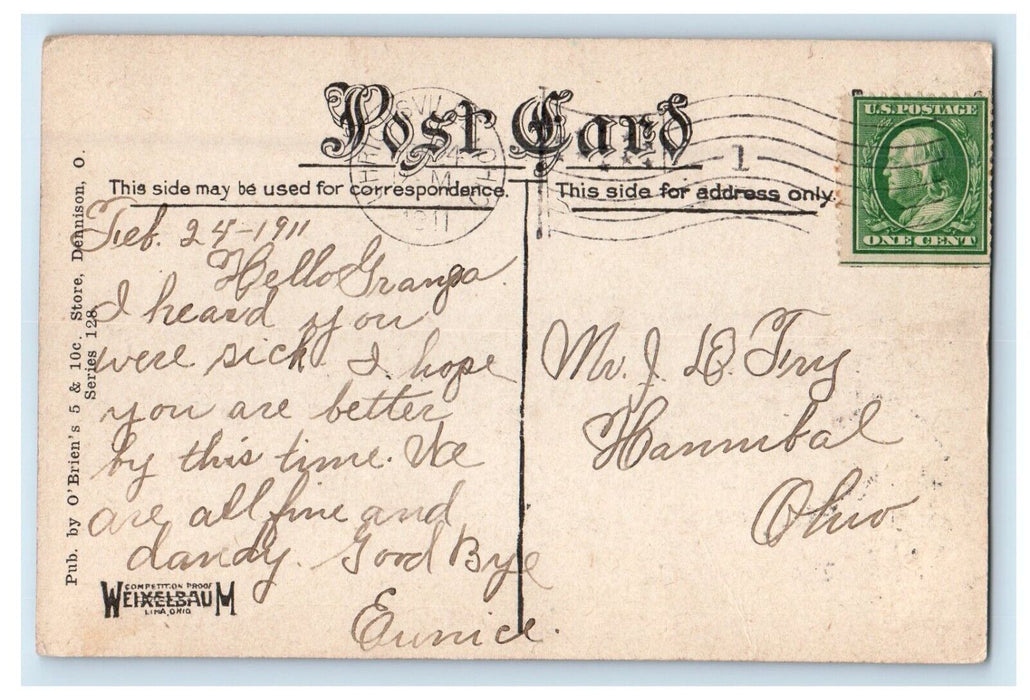 Post Card
This side may be used for correspondence.
This side for address only.
U.S. POSTAGE
ONE CENT
1
1911
Feb. 24-1911
Hello Granpa
I heard you
were sick. I hope
you are better
by this time. We
are all fine and
dandy. Good Bye
Eunice.
Mr. J. Fry
Hannibal
Ohio
Pub. by O'Brien's 5 & 10c. Store, Dennison, O.
Series 128.
COMPETITION PROOF
WEIXELBAUM
LIMA, OHIO